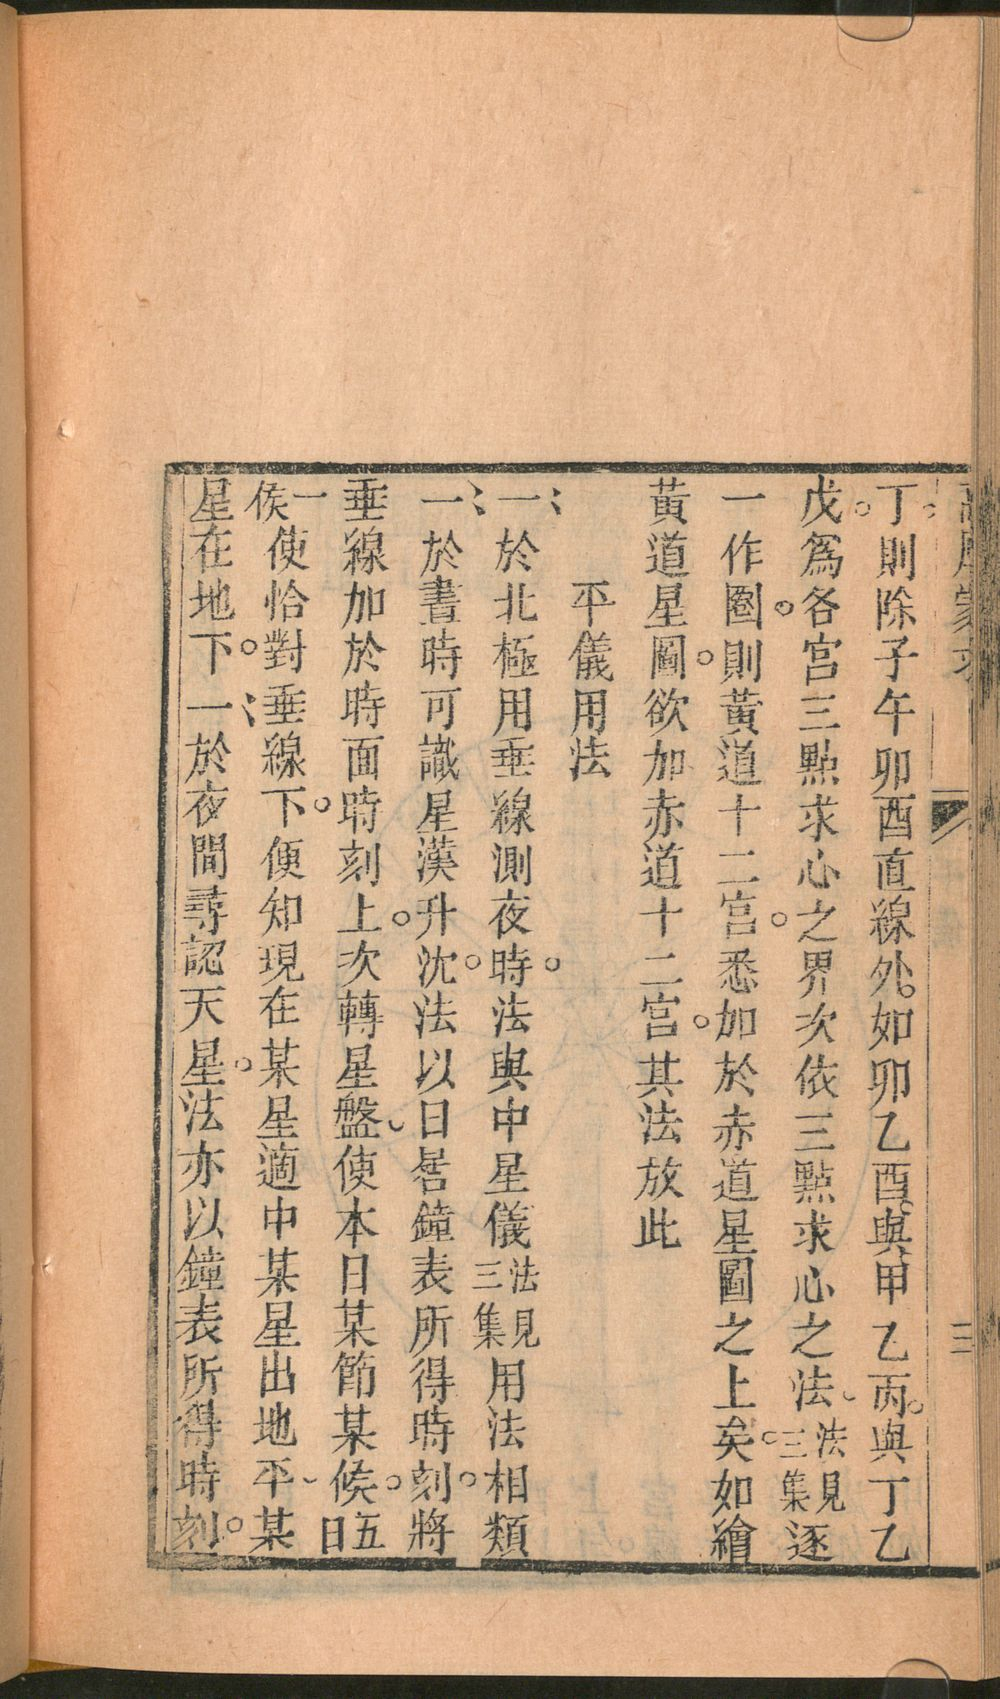 丁則除子午卯酉直線外如卯乙酉與甲乙丙與丁乙
戊爲各宮三點求心之界次依三點求心之法法見三集逐
一作圈則黃道十二宮悉加於赤道星圖之上矣如繪
黃道星圖欲加赤道十二宮其法放此
平儀用法
一於北極用垂線測夜時法與中星儀法見三集用法相類
一於晝時可識星漢升沈法以日晷鐘表所得時刻將
垂線加於時面時刻上次轉星盤使本日某節某候五日
一候使恰對垂線下便知現在某星適中某星出地平某
星在地下一於夜間尋認天星法亦以鐘表所得時刻
三